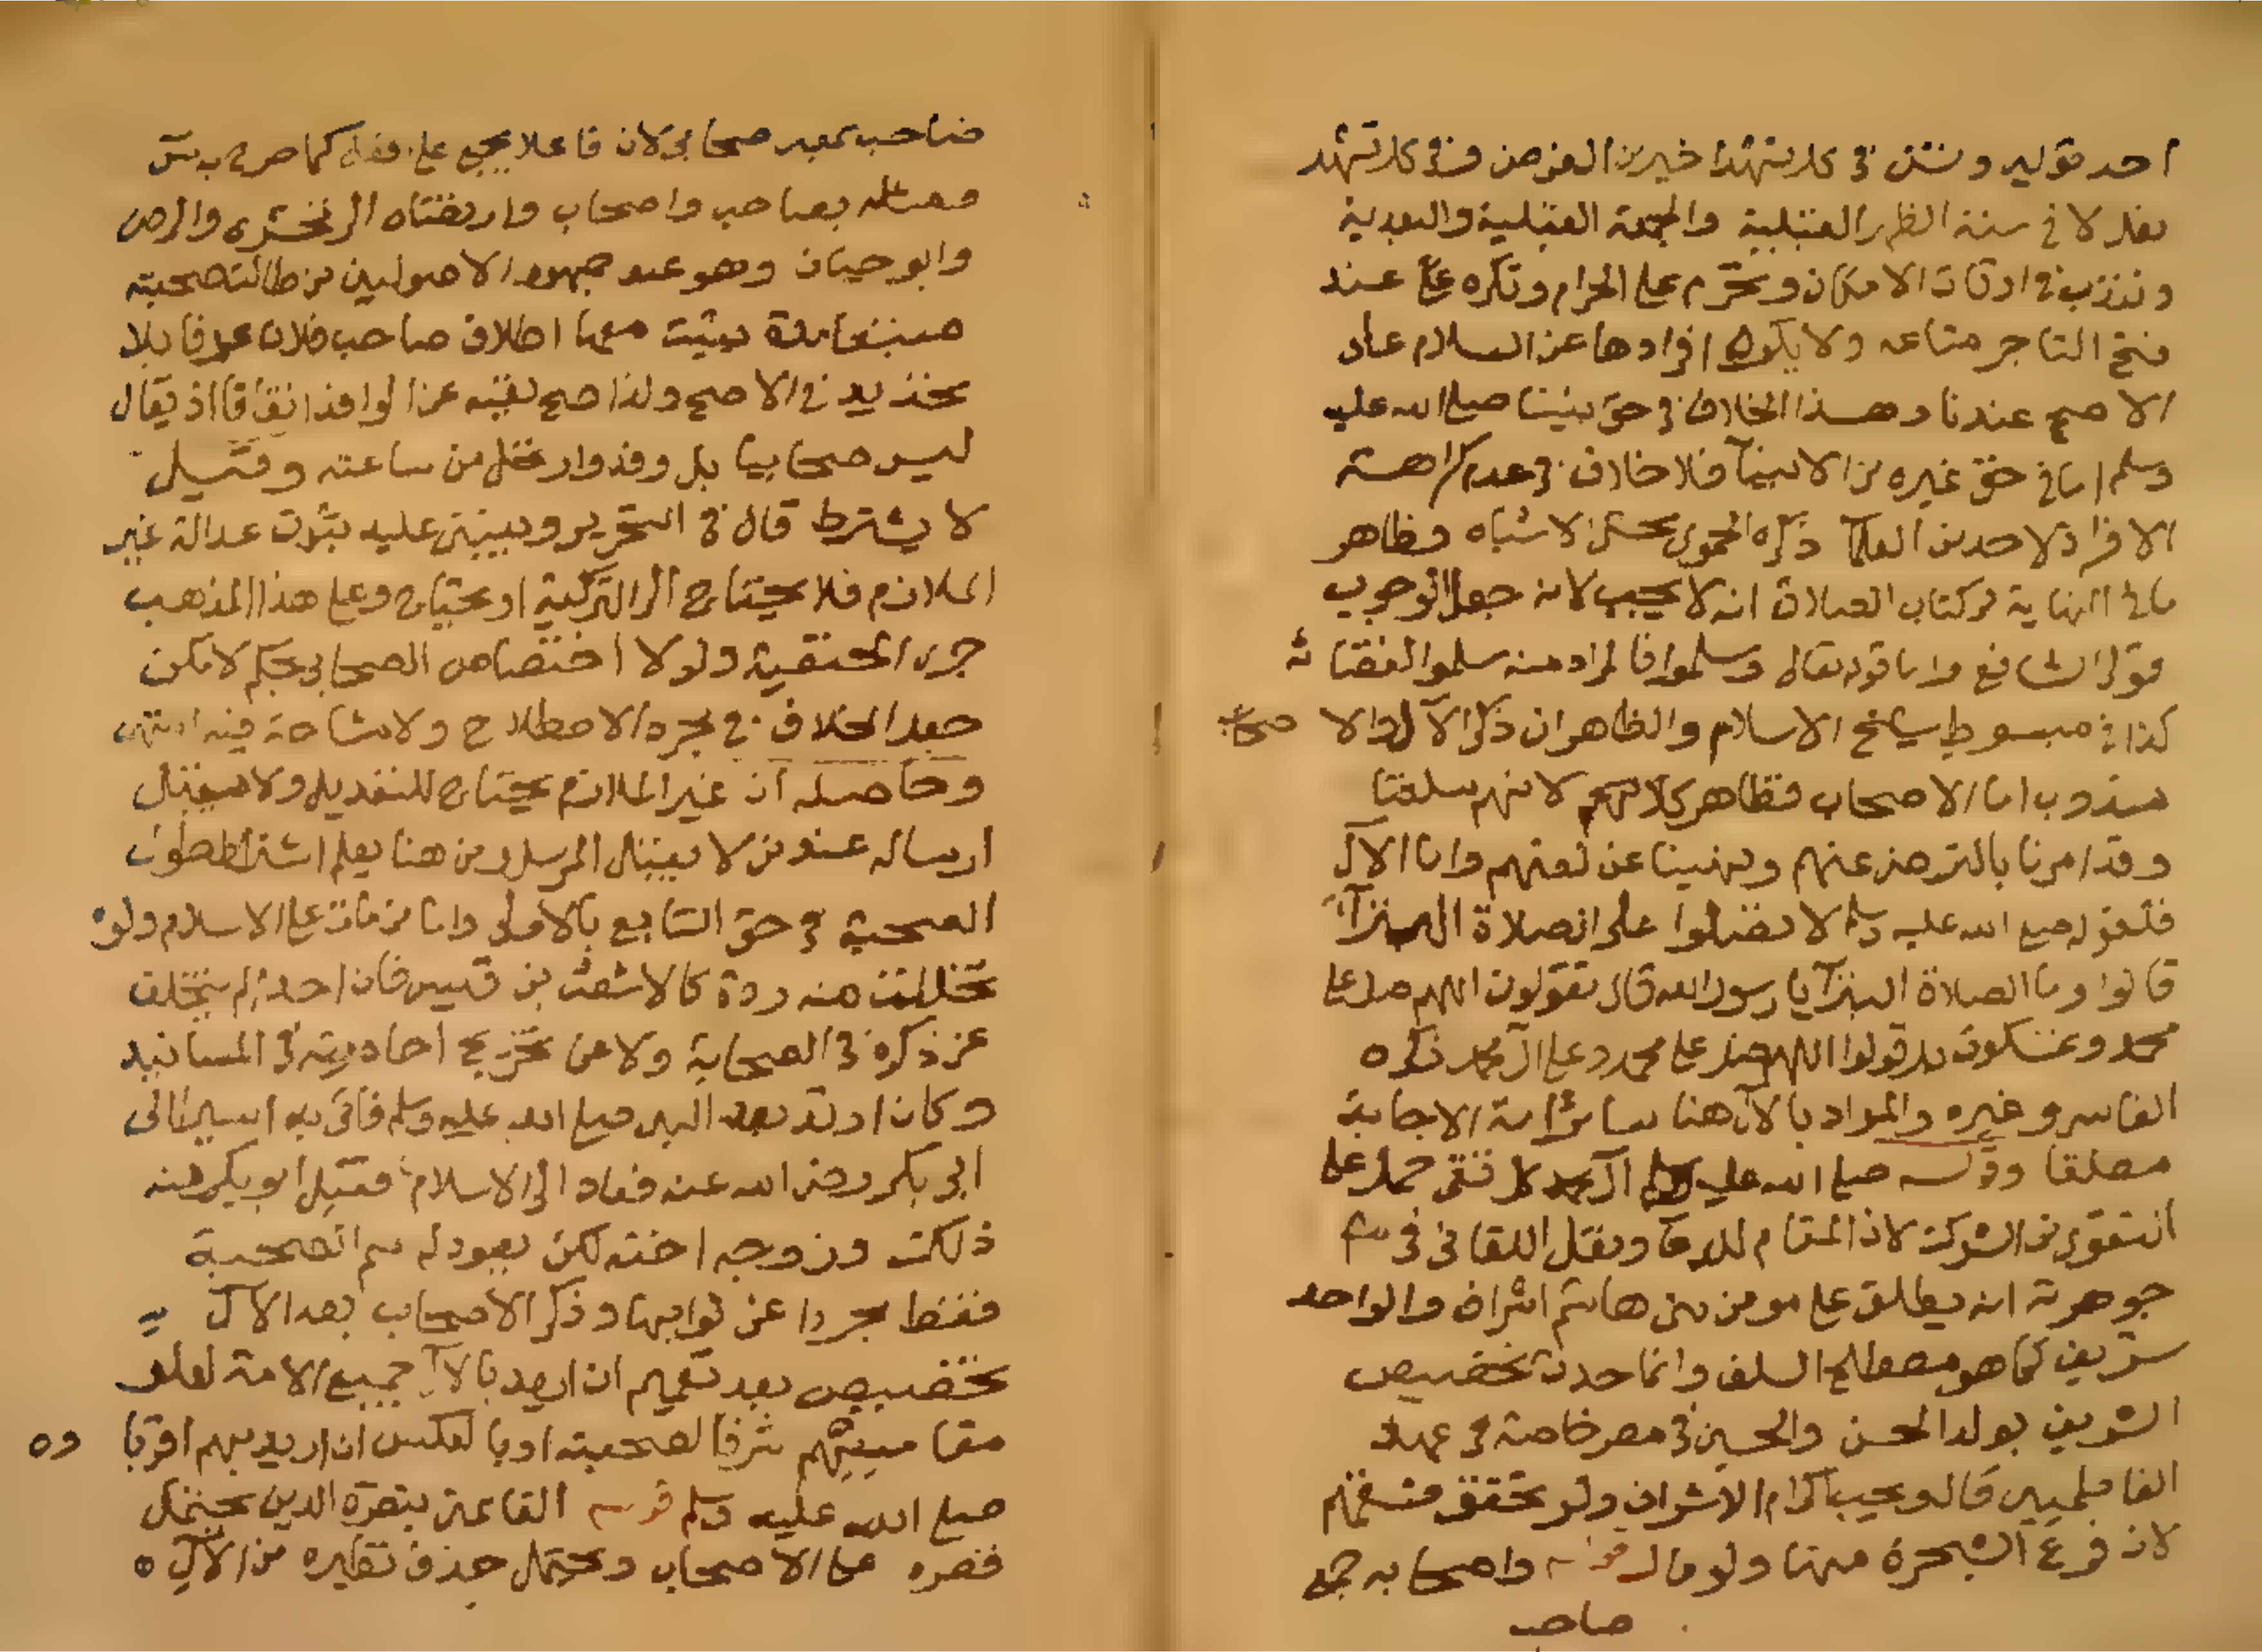 احد قوليه وتسن في كل تشهد اخير من الفرض وفي كل تشهد
نفل لا في سنة الظهر القبلية والجمعة القبلية والبعدية
وتندب في اوقات الامكان وتحرم على الحرام وتكره عند
فتح التاجر متاعه ولا يكره افرادها عن السلام على
الاصح عندنا وهذا الخلاف في حق نبينا صلى الله عليه
وسلم اما في حق غيره من الانبيآ فلا خلاف في عدم كراهة
الافراد لاحد من العلمآ ذكره الحموي محشى الاشباه وظاهر
ما في النهاية من كتاب الصلاة انه لا يجب لانه جعل الوجوب
قول الشافعي واما قوله تعالى وسلموا فالمراد منه سلموا لقضائه
كذا في مبسوط شيخ الاسلام والظاهر ان ذكر الآل والا صحاب
مندوب اما الاصحاب فظاهر كلامهم لانهم سلفنا
وقد امرنا بالترضي عنهم ونهينا عن لعنهم واما الآل
فلقوله صلى الله عليه وسلم لا تصلوا على الصلاة البترآ
قالوا وما الصلاة البترآ يا رسول الله قال تقولون اللهم صل على
محمد وتمسكون بل قولوا اللهم صل على محمد وعلى آل محمد ذكره
الفاسي وغيره والمراد بالآل هنا سائر امة الاجابة
مطلقا وقوله صلى الله عليه وسلم آل محمد كل تقي حمل على
التقوى من الشرك لان المقام للدعآ ونقل اللقاني في شرح
جوهرته انه يطلق على مومن بني هاشم اشراف والواحد
شريف كما هو مصطلح السلف وانما حدث تخصيص
الشريف بولد الحسن والحسين في مصر خاصة في عهد
الفاطميين قال ويجب اكرام الاشراف ولو تحقق فسقهم
لان فرع الشجرة منها ولو مال قوله واصحابه جمع
صاحب
صاحب بمعنى صحابي لان فاعلا يجمع على افعال كما صرح به س
ومثله بصاحب واصحاب وارتضاه الزمخشري والرضي
وابو حيان وهو عند جمهور الاصوليين من طالت صحبته
متبعا مدة يثبت معها اطلاق صاحب فلان عرفا بلا
تحديد في الاصح ولذا صح نفيه عن الوافد اتفاقا اذ يقال
ليس صحابيا بل وفد وارتحل من ساعته وقيل
لا يشترط قال في التحرير ويبتنى عليه ثبوت عدالة غير
الملازم فلا يحتاج الى التزكية او يحتاج وعلى هذا المذهب
جرى الحنفية ولولا اختصاص الصحابي بحكم لامكن
جعل الخلاف في مجرد الاصطلاح ولا مشاحة فيه انتهى
وحاصله ان غير الملازم يحتاج للتعديل ولا يقبل
ارساله عند من لا يقبل المرسل ومن هنا يعلم اشتراط طول
الصحبة في حق التابع بالاولى واما من مات على الاسلام ولو
تخللت منه ردة كالاشعث بن قيس فان احدا لم يتخلف
عن ذكره في الصحابة ولا عن تخريج احاديثه في المسانيد
وكان ارتد بعد النبي صلى الله عليه وسلم فاتى به اسيرا الى
ابي بكر رضي الله عنه فعاد الى الاسلام فقبل ابو بكر منه
ذلك وزوجه اخته لكن يعود له اسم الصحبة
فقط مجردا عن ثوابها وذكر الاصحاب بعد الآل
تخصيص بعد تعميم ان اريد بالآل جميع الامة لعلو
مقامهم شرفا لصحبته او بالعكس ان اريد بهم اقربا وه
صلى الله عليه وسلم قوله القائمين بنصرة الدين يحتمل
قصره على الاصحاب ويحتمل حذف نظيره من الآل